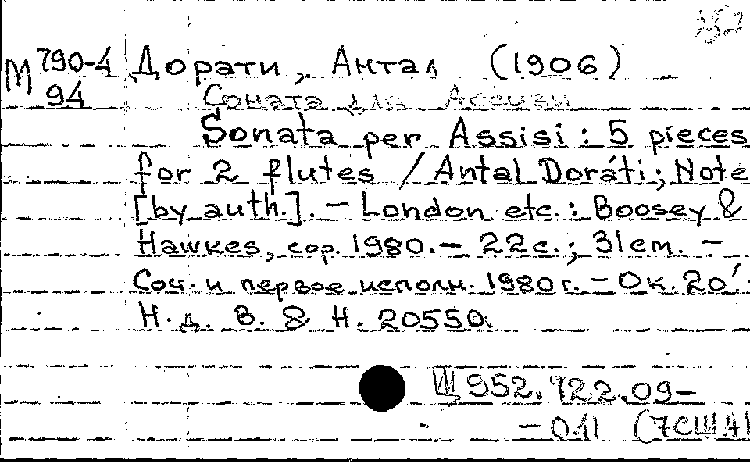 М 790-4 Дорати, Антал (1906)
94 Соната для Ассизи
Sonata per Assisi : 5 pieces
for 2 flutes / Antal Doráti ; Note
[by auth.]. – London etc. : Boosey &
Hawkes, cop. 1980. – 22 с. ; 31 cm. –
Соч. и первое исполн. 1980 г. – Ок. 20′.
Н. д. B. & H. 20550.
Щ 952.122.09–
– 011 (7США)